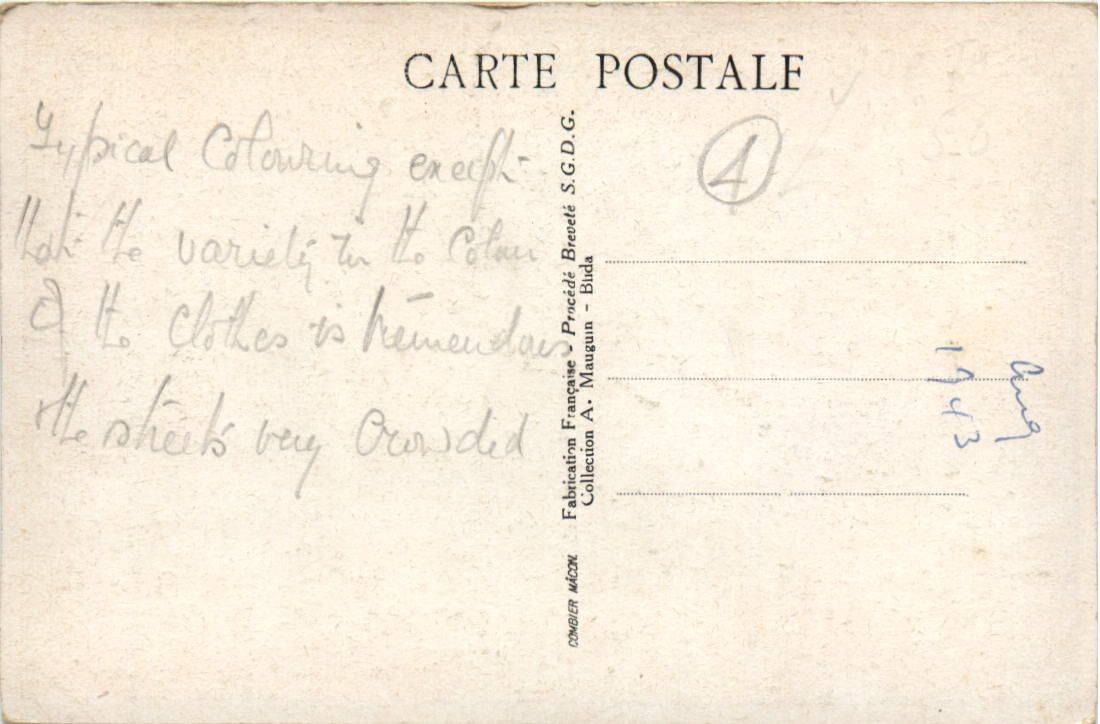 CARTE POSTALE
Typical Colouring except
that the variety in the Colour
of the Clothes is tremendous
the streets very Crowded
4
Fabrication Française - Procédé Breveté S.G.D.G.
Collection A. Mauguin - Blida
COMBIER MÂCON
Aug
1943